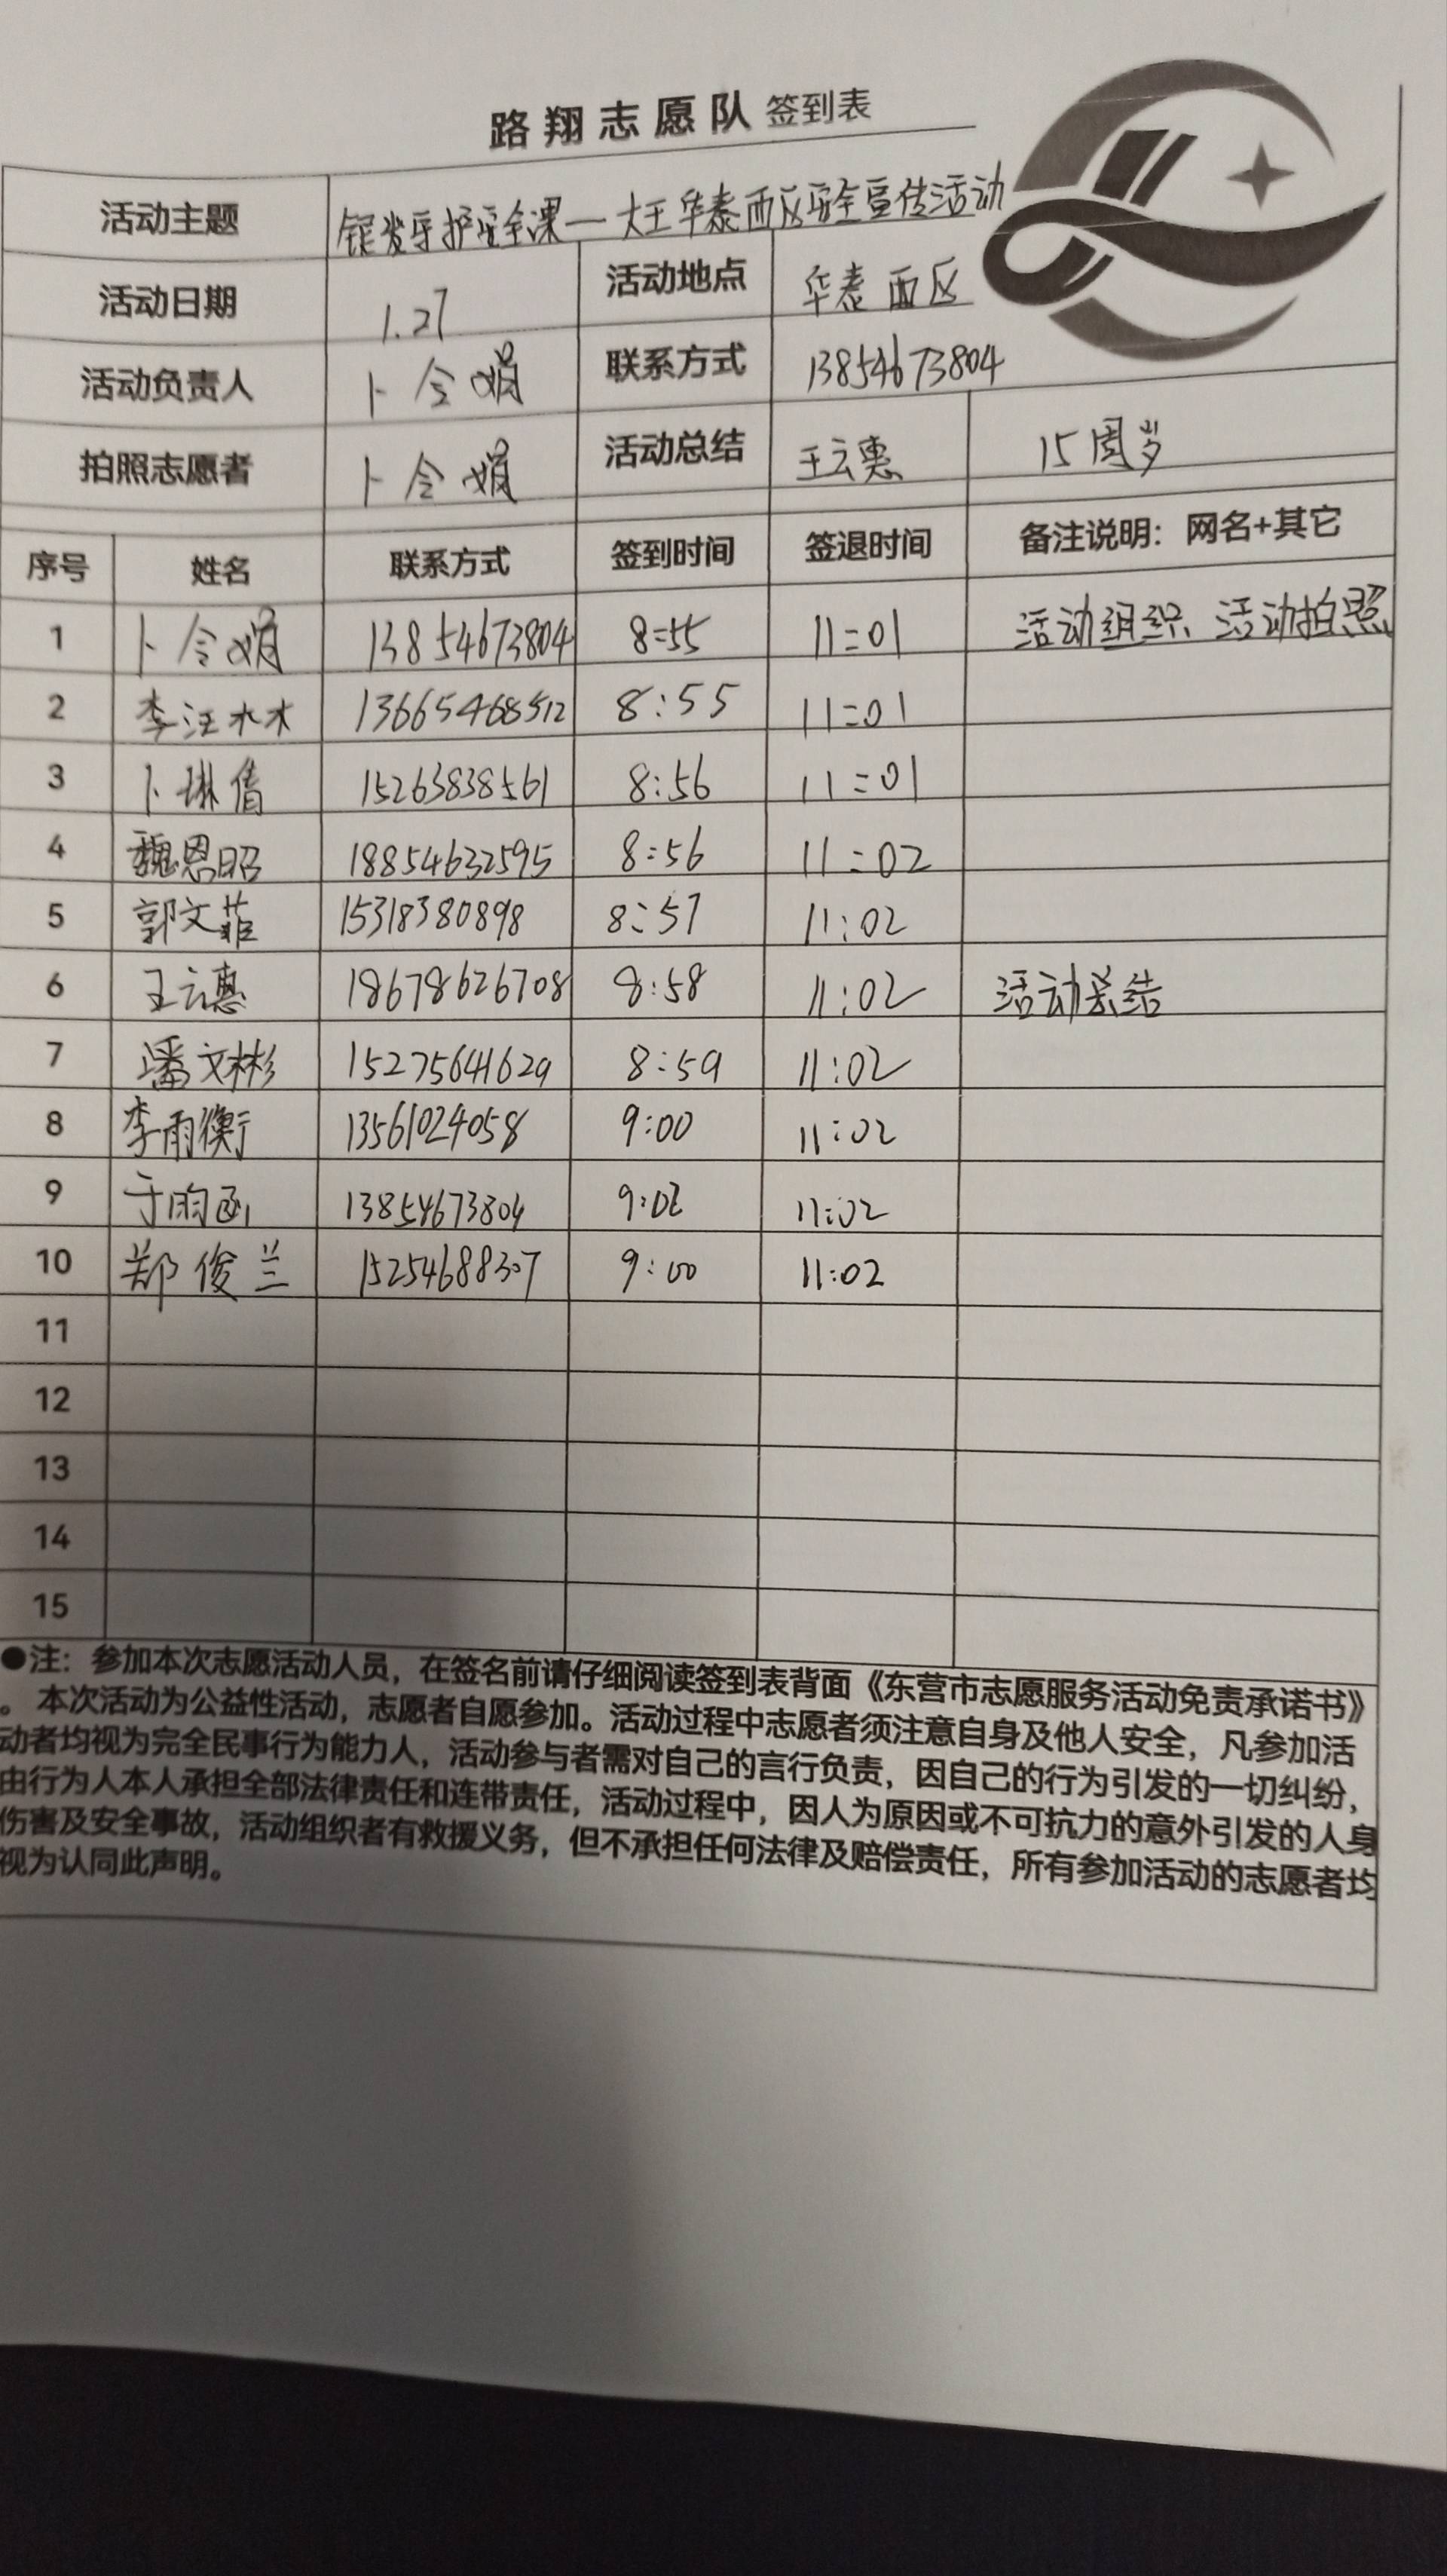 路翔志愿队 签到表
活动主题 银发守护安全课—大王华泰西区安全宣传活动
活动日期 1.27 活动地点 华泰西区
活动负责人 卜令娟 联系方式 13854673804
拍照志愿者 卜令娟 活动总结 王云惠 15周岁
序号 姓名 联系方式 签到时间 签退时间 备注说明：网名+其它
1 卜令娟 13854673804 8:55 11:01 活动组织、活动拍照
2 李汪水木 13665468512 8:55 11:01
3 卜琳倩 15263838561 8:56 11:01
4 魏恩昭 18854632595 8:56 11:02
5 郭文菲 15318380898 8:57 11:02
6 王云惠 18678626708 8:58 11:02 活动总结
7 潘文彬 15275641629 8:59 11:02
8 李雨衡 13561024058 9:00 11:02
9 于昀函 13854673804 9:02 11:02
10 郑俊兰 15254688307 9:00 11:02
11
12
13
14
15
●注：参加本次志愿活动人员，在签名前请仔细阅读签到表背面《东营市志愿服务活动免责承诺书》
。本次活动为公益性活动，志愿者自愿参加。活动过程中志愿者须注意自身及他人安全，凡参加活
动者均视为完全民事行为能力人，活动参与者需对自己的言行负责，因自己的行为引发的一切纠纷，
由行为人本人承担全部法律责任和连带责任，活动过程中，因人为原因或不可抗力的意外引发的人身
伤害及安全事故，活动组织者有救援义务，但不承担任何法律及赔偿责任，所有参加活动的志愿者均
视为认同此声明。